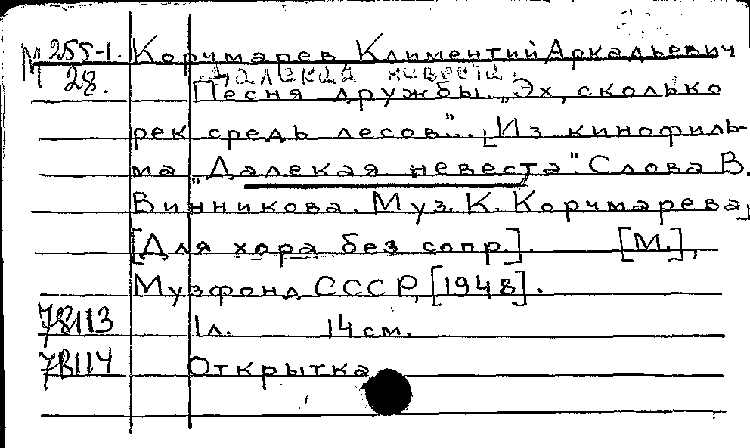 М 255-1. Корчмарев Климентий Аркадьевич
28. Далекая невеста.
Песня дружбы. "Эх, сколько
рек средь лесов"... [Из кинофиль-
ма "Далекая невеста". Слова В.
Винникова. Муз. К. Корчмарева]
[Для хора без сопр.]. [М.],
Музфонд СССР, [1948].
78113 1 л. 14 см.
78114 Открытка